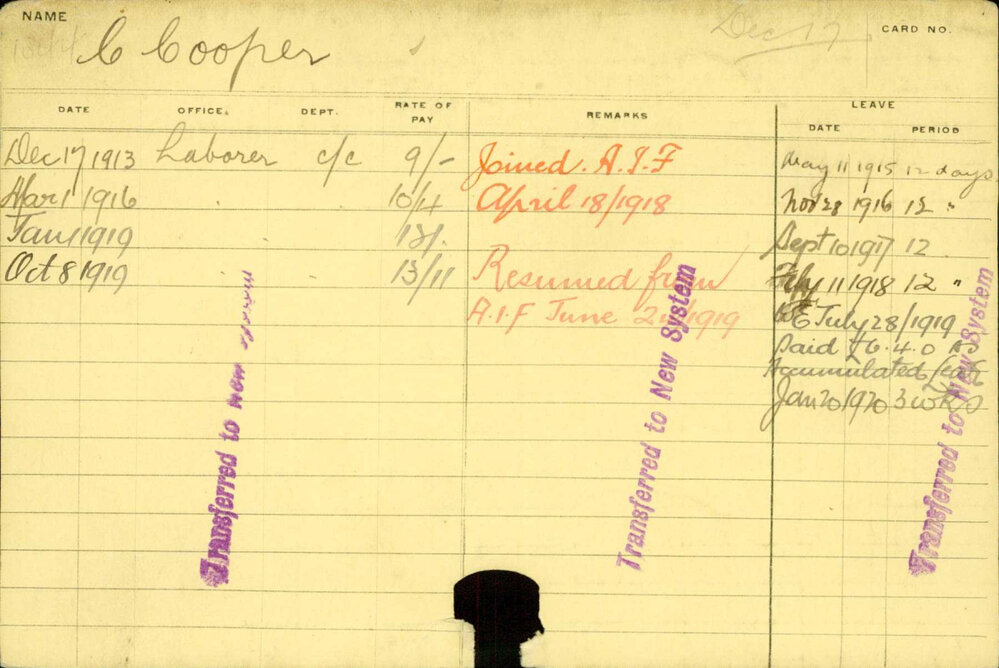 NAME
C Cooper
Dec 17
CARD NO.
DATE OFFICE. DEPT. RATE OF PAY REMARKS LEAVE
DATE PERIOD
Dec 17 1913 Laborer c/c 9/- Joined. A.I.F May 11 1915 12 days
Mar 1 1916 10/4 April 18/1918 Nov 28 1916 12 "
Jan 1 1919 12/. Sept 10 1917 12
Oct 8 1919 13/11 Resumed from 11 1918 12 "
A.I.F June 1919 July 28/1919
Paid £6.4.0
Accumulated
Jan 20 1920 3
Transferred to New System
Transferred to New System
Transferred to New System